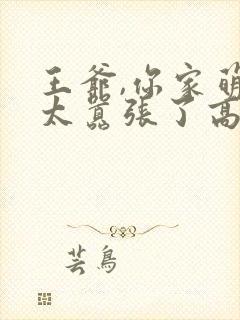 王爺,你家萌
太囂張了高
芸鳥